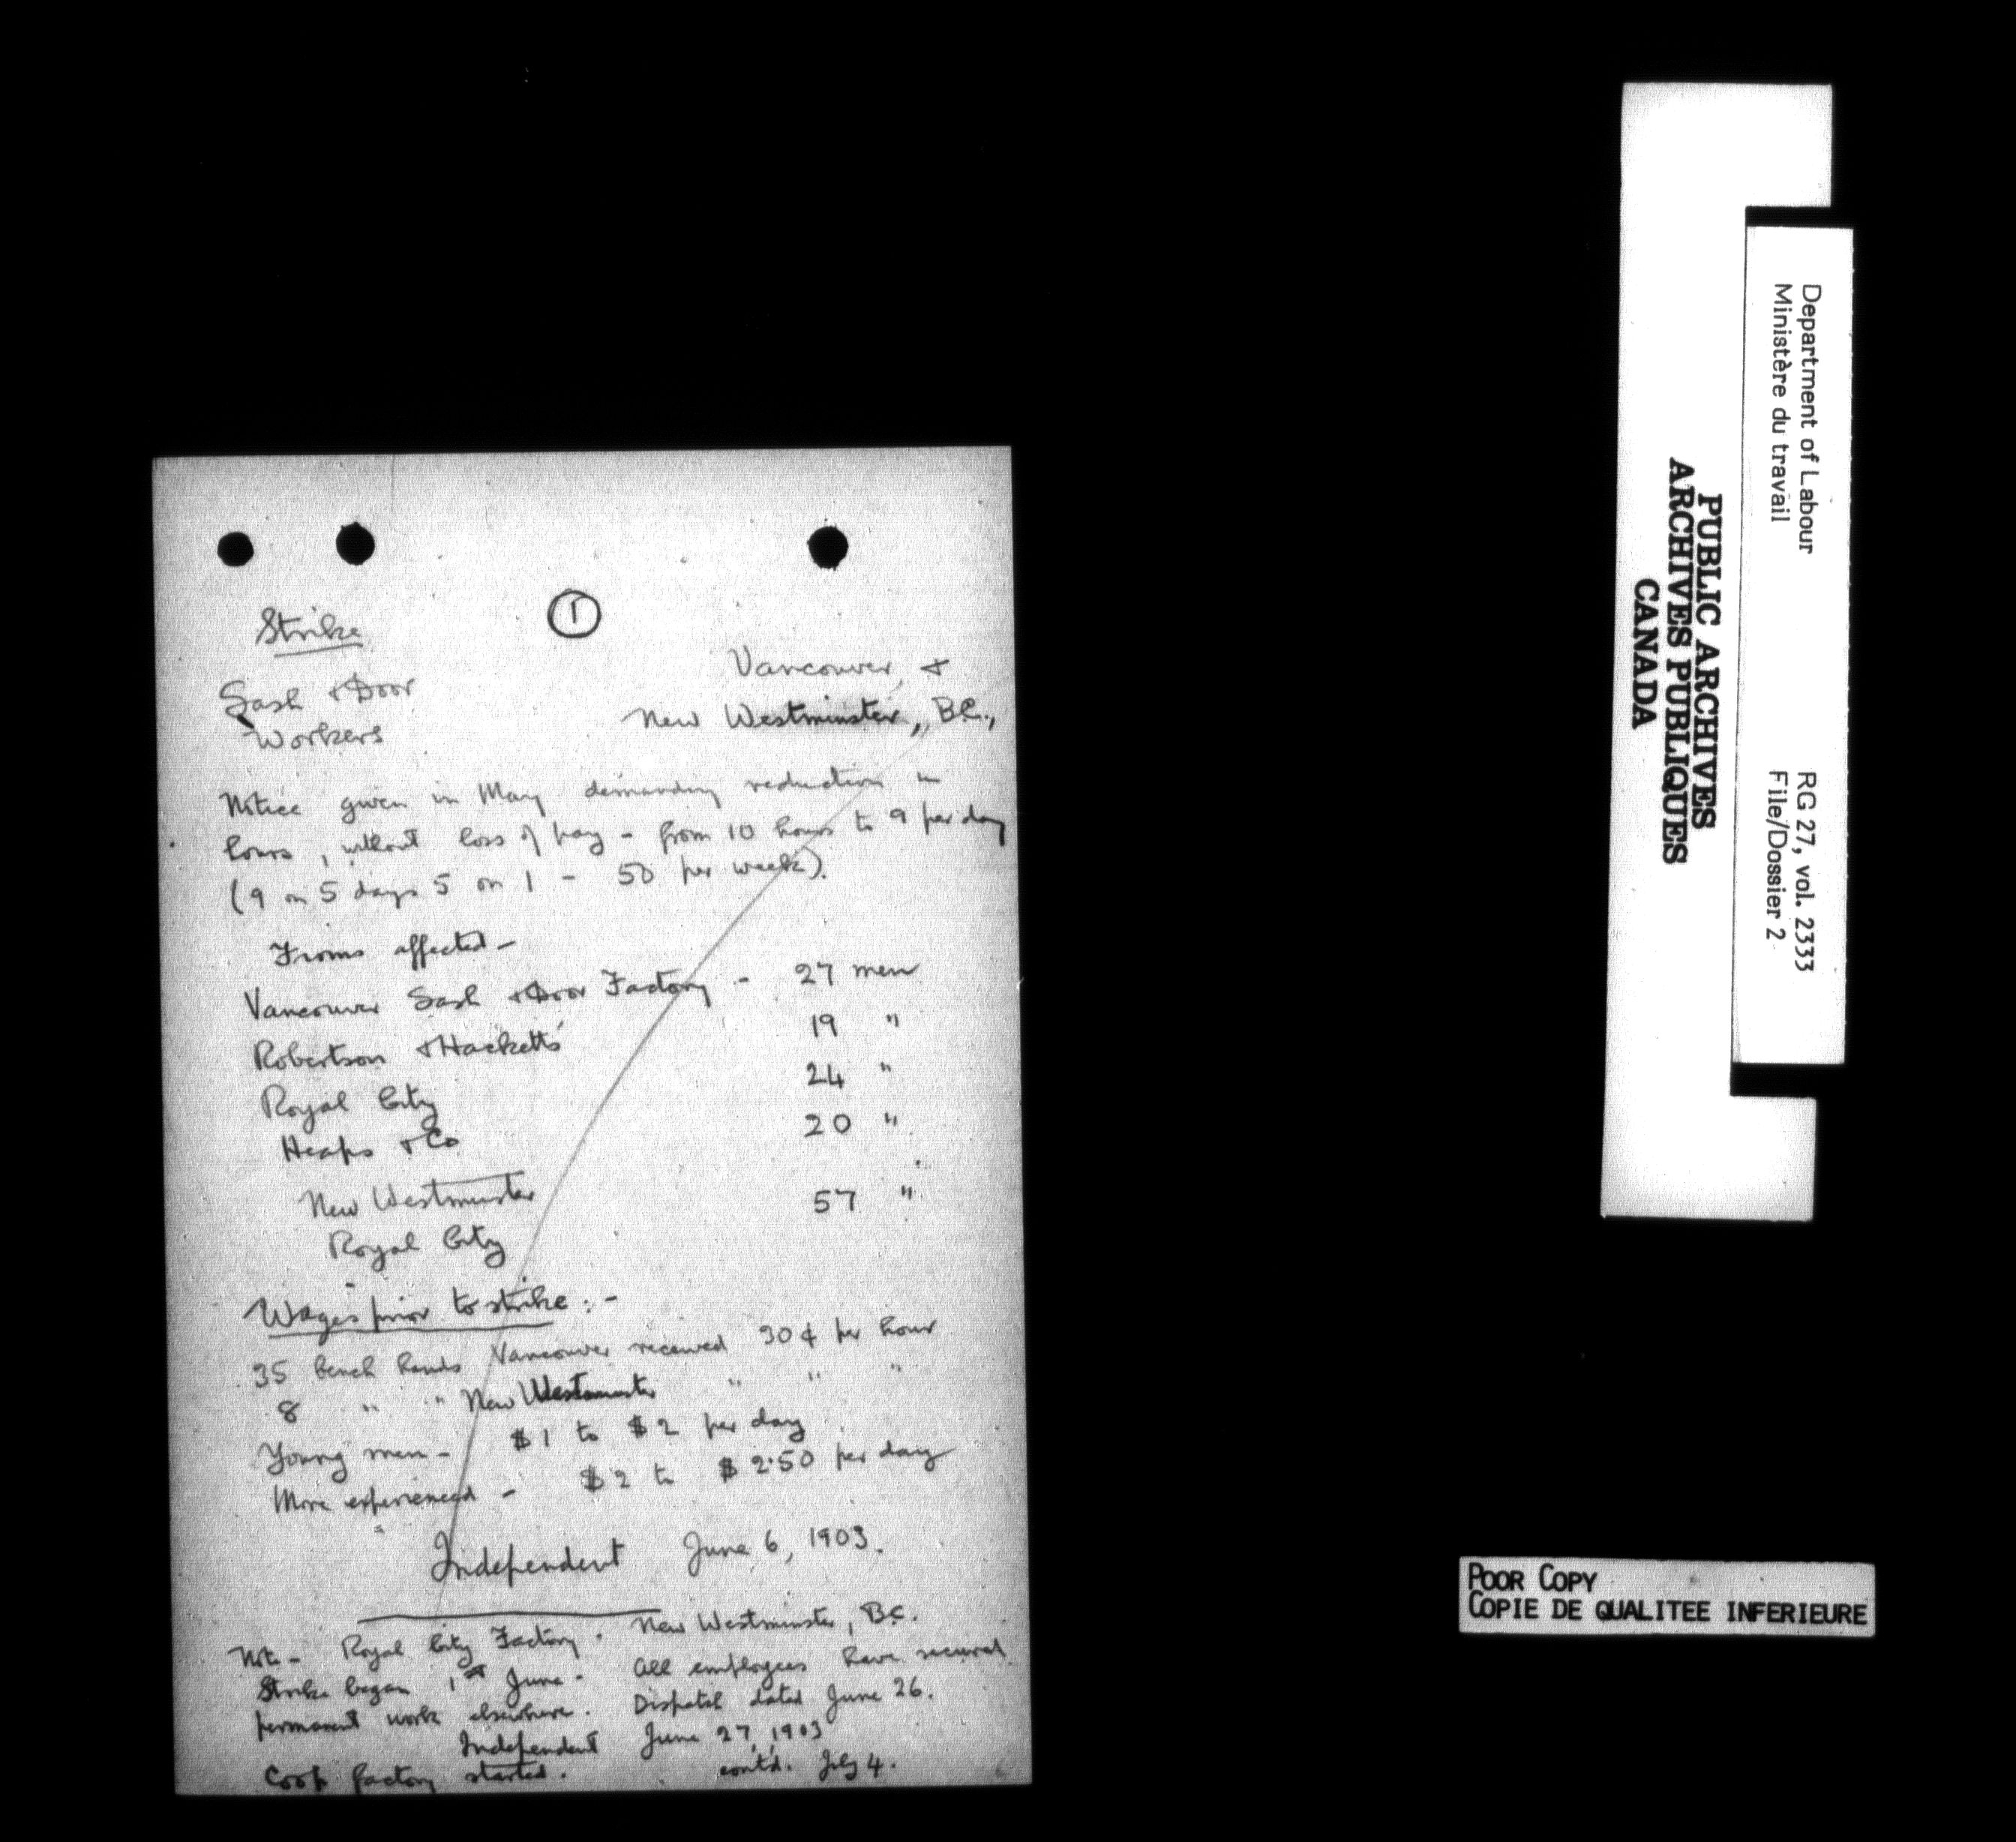 ①
Strike
Sash & Door
Workers
Vancouver, &
New Westminster, B.C.,
Notice given in May demanding reduction in
hours, without loss of pay - from 10 hours to 9 per day
(9 on 5 days 5 on 1 - 50 per week).
Firms affected -
Vancouver Sash & Door Factory - 27 men
Robertson & Hackett's 19 "
Royal City 24 "
Heaps & Co 20 "
New Westminster 57 "
Royal City
Wages prior to strike: -
35 bench hands Vancouver received 30¢ per hour
8 " " New Westminster " " "
Young men - $1 to $2 per day
More experienced - $2 to $2.50 per day
Independent June 6, 1903.
Note - Royal City Factory. New Westminster, B.C.
Strike began 1st June - All employees have secured
permanent work elsewhere. Dispatch dated June 26.
Independent June 27, 1903
Coop factory started. contd. July 4.
Department of Labour
Ministère du travail
RG 27, vol. 2333
File/Dossier 2
PUBLIC ARCHIVES
ARCHIVES PUBLIQUES
CANADA
POOR COPY
COPIE DE QUALITEE INFERIEURE